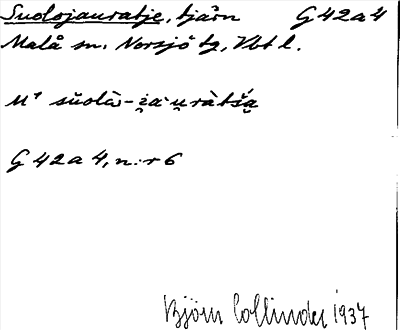 Suolojauratje, tjärn G 42 a 4
Malå sn. Norsjö tg, Vbt l.
M¹ sŭolὰ-i̯a·u̯ràtšá̮
G 42 a 4, n:r 6
Björn Collinder 1937